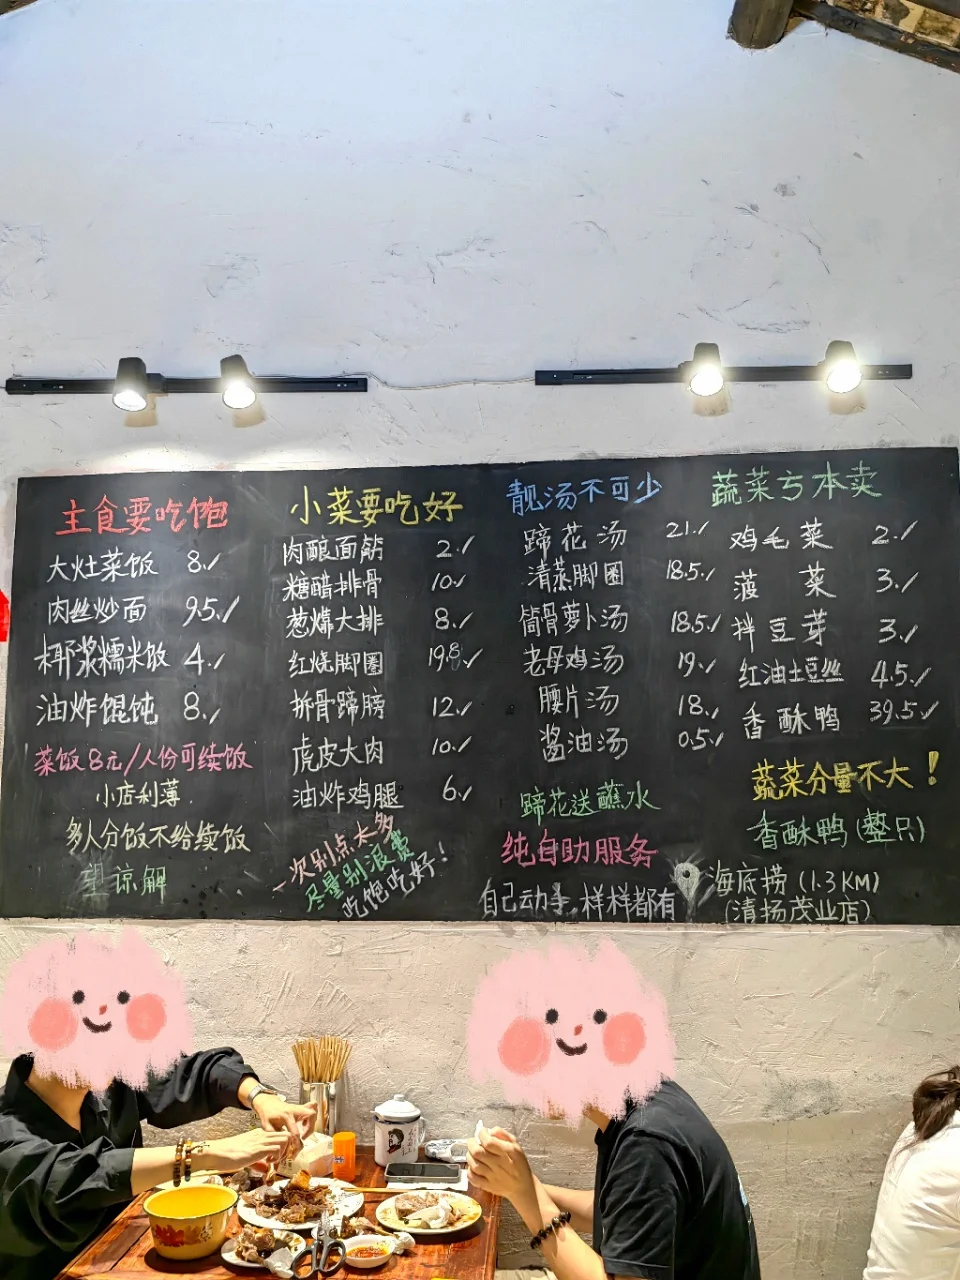 主食要吃饱
大灶菜饭 8./
肉丝炒面 9.5./
椰浆糯米饭 4./
油炸馄饨 8./
菜饭8元/人份可续饭
小店利薄.
多人分饭不给续饭
望谅解
小菜要吃好
肉酿面筋 2./
糖醋排骨 10./
葱㸆大排 8./
红烧脚圈 19.8./
拆骨蹄膀 12./
虎皮大肉 10./
油炸鸡腿 6./
一次别点太多
尽量别浪费
吃饱吃好!
靓汤不可少
蹄花汤 21./
清蒸脚圈 18.5./
筒骨萝卜汤 18.5/
老母鸡汤 19./
腰片汤 18./
酱油汤 0.5/
蹄花送蘸水
纯自助服务
自己动手,样样都有
蔬菜亏本卖
鸡毛菜 2./
菠菜 3./
拌豆芽 3./
红油土豆丝 4.5./
香酥鸭 39.5/
蔬菜分量不大!
香酥鸭(整只)
海底捞(1.3KM)
(清扬茂业店)